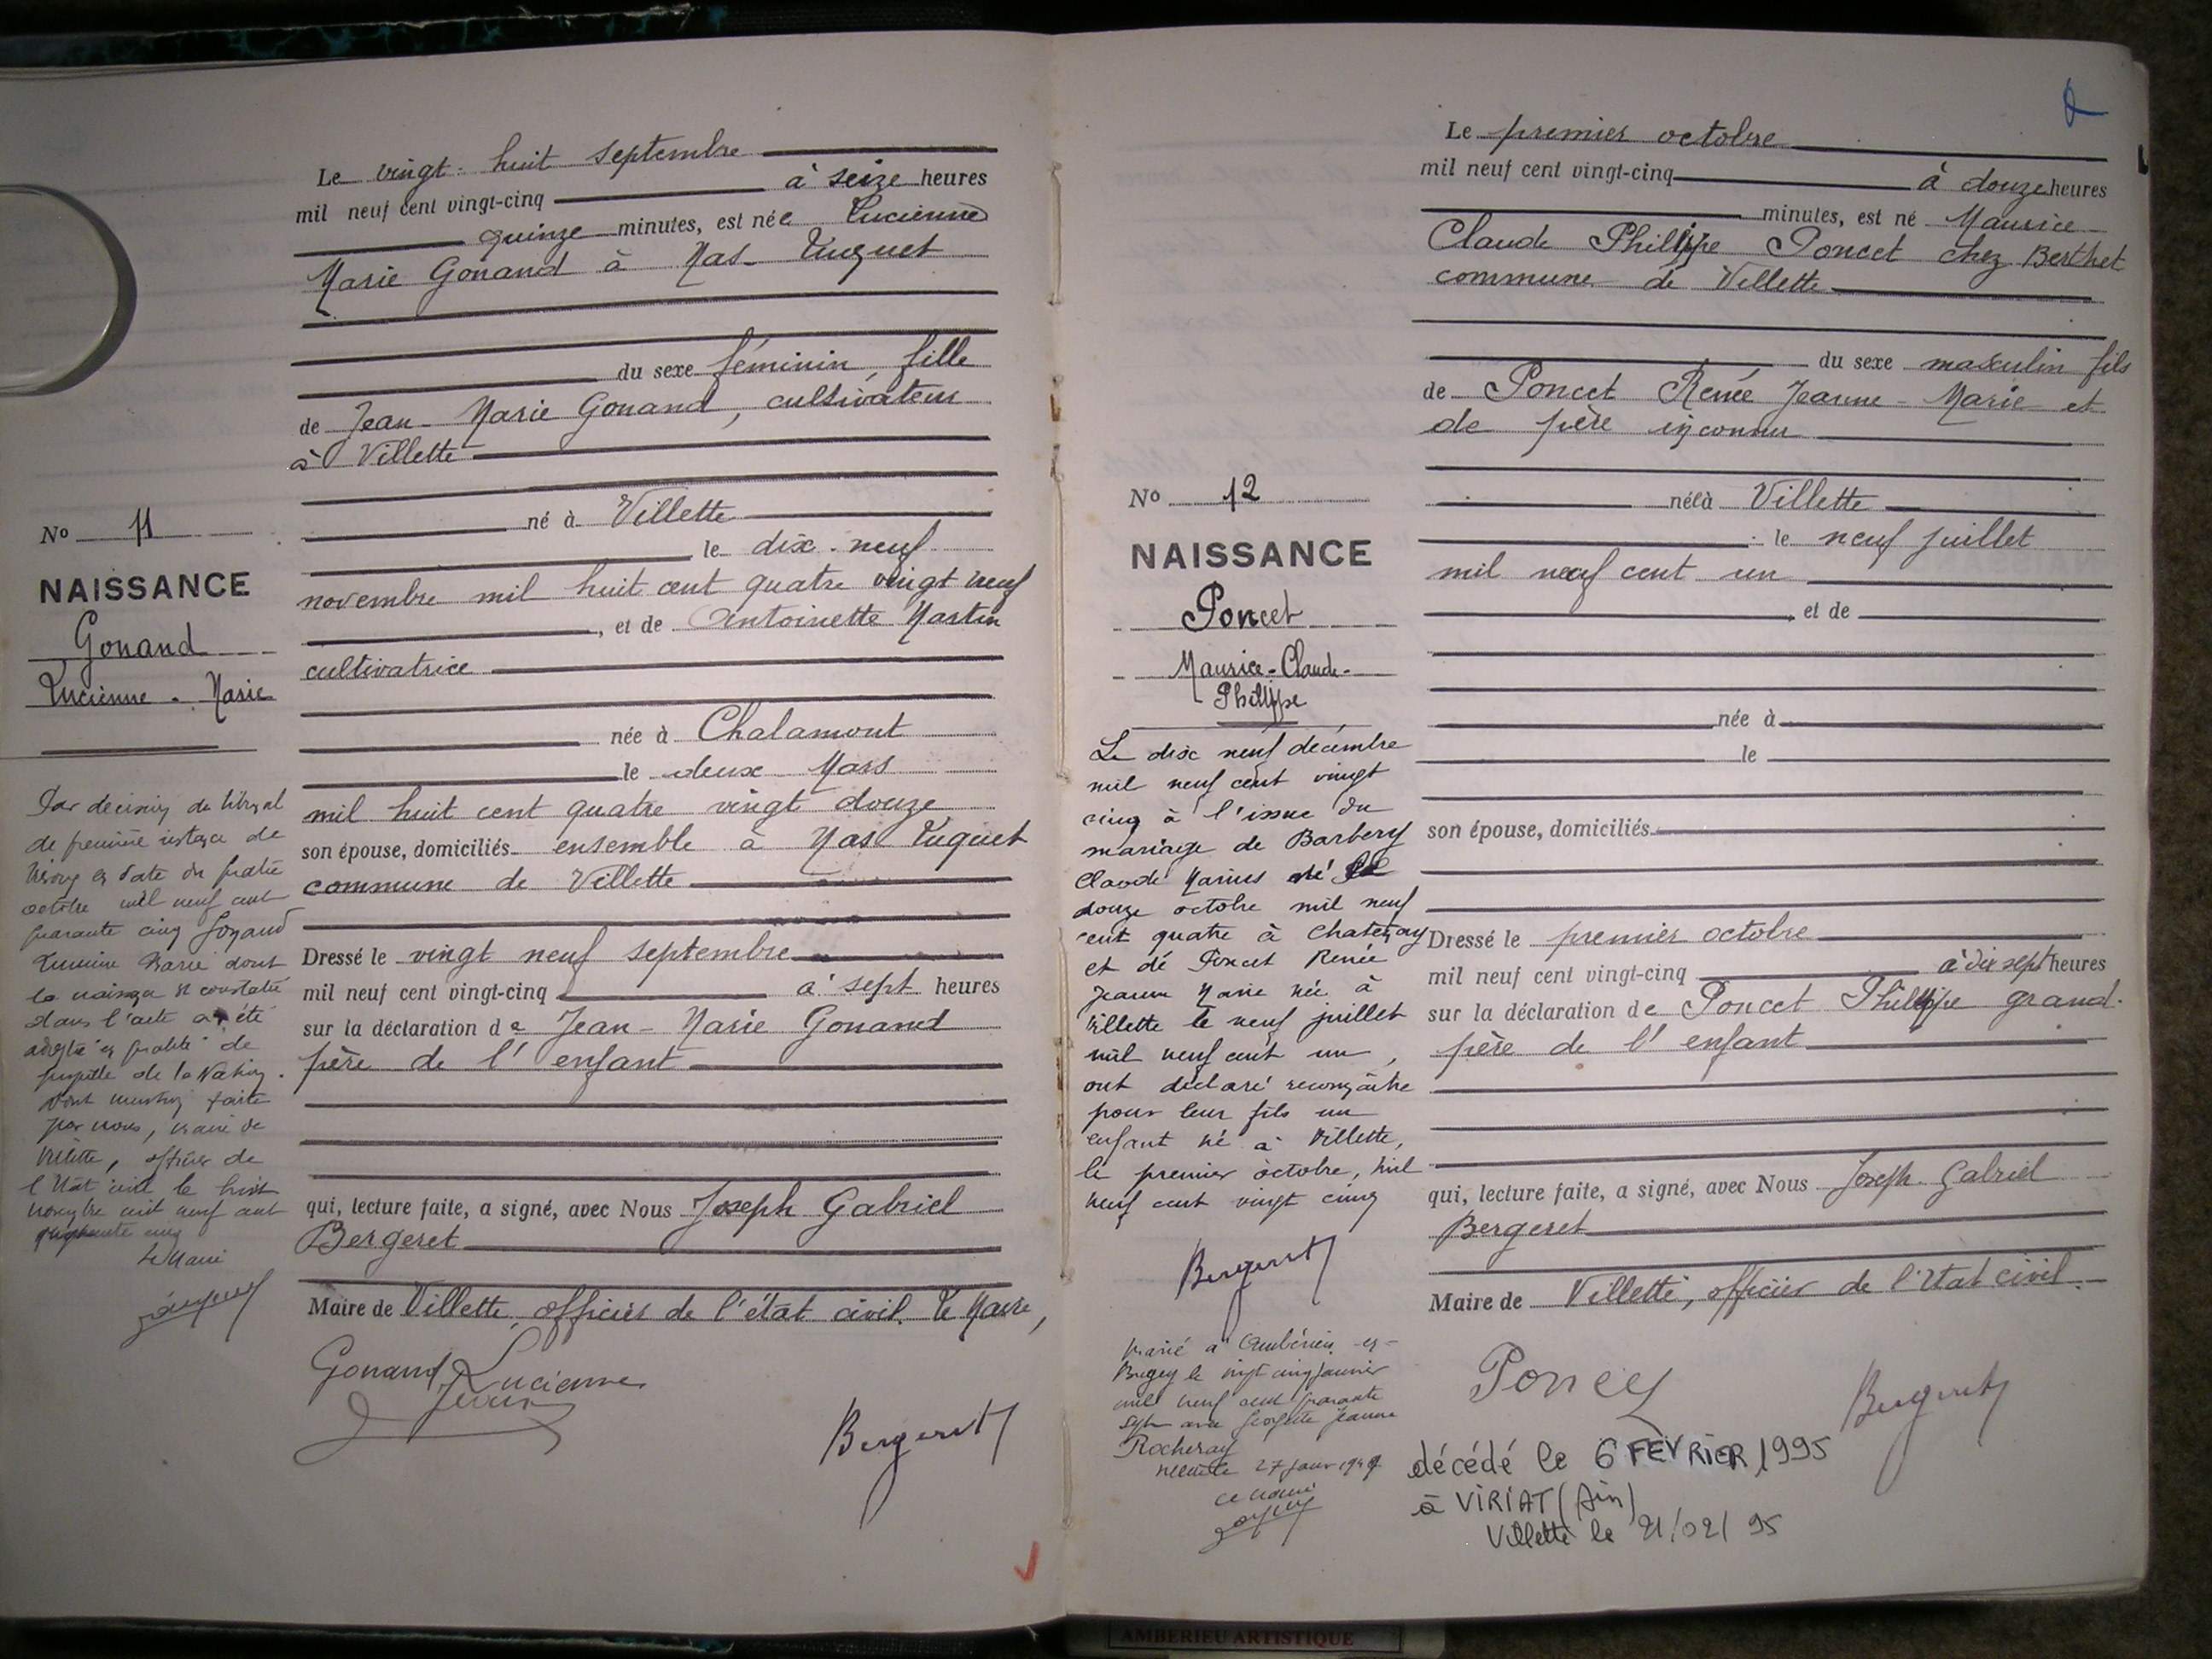 Le vingt-huit septembre
mil neuf cent vingt-cinq à seize heures
quinze minutes, est née Lucienne
Marie Gonand à Mas-Luquet
du sexe féminin, fille
de Jean-Marie Gonand, cultivateur
à Villette
né à Villette
le dix-neuf
novembre mil huit cent quatre vingt neuf
, et de Antoinette Martin
cultivatrice
née à Chalamont
le deux Mars
mil huit cent quatre vingt douze
son épouse, domiciliés ensemble à Mas Luquet
commune de Villette
Dressé le vingt neuf septembre
mil neuf cent vingt-cinq à sept heures
sur la déclaration de Jean-Marie Gonand
père de l'enfant
qui, lecture faite, a signé, avec Nous Joseph Gabriel
Bergeret
Maire de Villette, officier de l'état civil. Le Maire,
Gonand Lucienne
Bergeret
No 11
NAISSANCE
Gonand
Lucienne - Marie
Par decision du tribunal
de première instance de
en date du quatre
octobre mil neuf cent
quarante cinq Gonand
Lucienne Marie dont
la naissance est constatée
dans l'acte a été
adoptée en qualité de
pupille de la Nation.
Dont mention faite
par nous, maire de
Villette, officier de
l'Etat civil le huit
novembre mil neuf cent
quarante cinq
Le Maire
Le premier octobre
mil neuf cent vingt-cinq à douze heures
minutes, est né Maurice
Claude Philippe Poncet chez Berthet
commune de Villette
du sexe masculin fils
de Poncet Renée Jeanne-Marie et
de père inconnu
née à Villette
le neuf juillet
mil neuf cent un
et de
née à
le
son épouse, domiciliés
Dressé le premier octobre
mil neuf cent vingt-cinq à dix sept heures
sur la déclaration de Poncet Philippe grand-
père de l'enfant
qui, lecture faite, a signé, avec Nous Joseph Gabriel
Bergeret
Maire de Villette, officier de l'état civil.
Poncet
Bergeret
décédé le 6 FÉVRIER 1995
à VIRIAT (Ain)
Villette le 21/02/95
No 12
NAISSANCE
Poncet
Maurice-Claude-
Philippe
Le dix neuf décembre
mil neuf cent vingt
cinq à l'issue du
mariage de Barbery
Claude Marius né le
douze octobre mil neuf
cent quatre à Chatenay
et de Poncet Renée
Jeanne Marie née à
Villette le neuf juillet
mil neuf cent un,
ont déclaré reconnaître
pour leur fils un
enfant né à Villette,
le premier octobre, mil
neuf cent vingt cinq
Bergeret
Marié à Ambérieu-en-
Bugey le vingt cinq janvier
mil neuf cent quarante
sept avec Georgette Jeanne
Rocheray
27 janv 194
Le Maire
AMBERIEU ARTISTIQUE